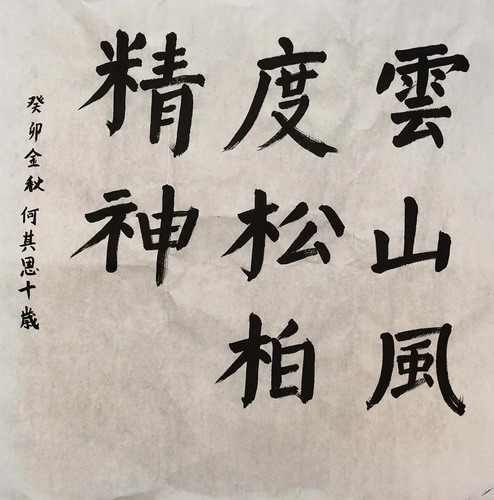 雲山風
度松柏
精神
癸卯金秋 何其恩十歲